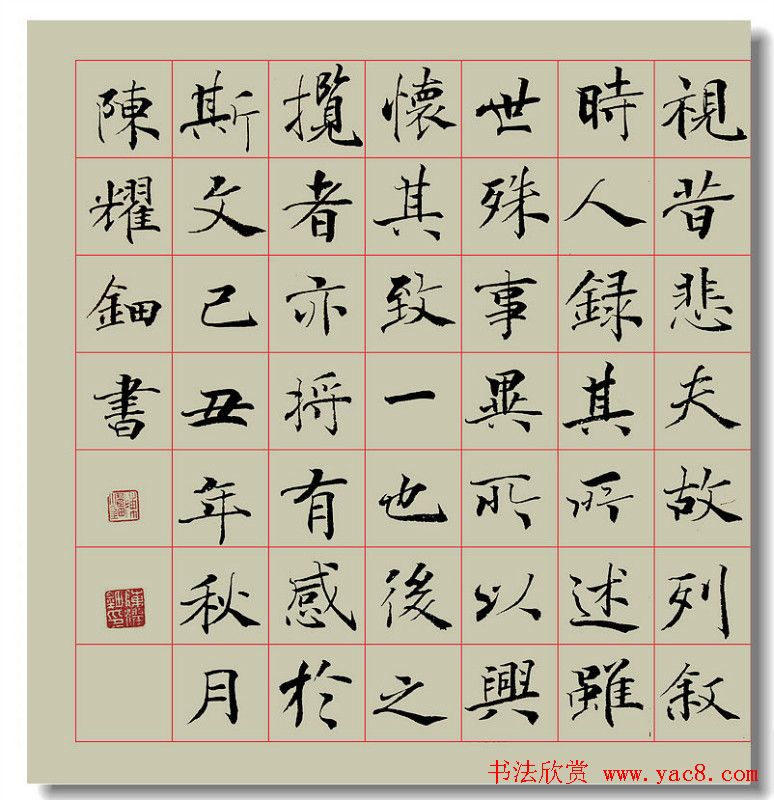 視昔悲夫故列敘
時人錄其所述雖
世殊事異所以興
懷其致一也後之
攬者亦將有感於
斯文己丑年秋月
陳耀鈿書
书法欣赏 www.yac8.com